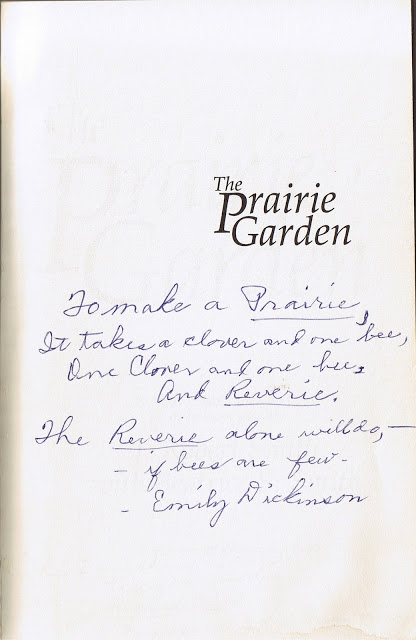 The
Prairie
Garden
To make a Prairie,
It takes a clover and one bee,
One Clover and one bee,
And Reverie.
The Reverie alone will do,—
- if bees are few-
- Emily Dickinson